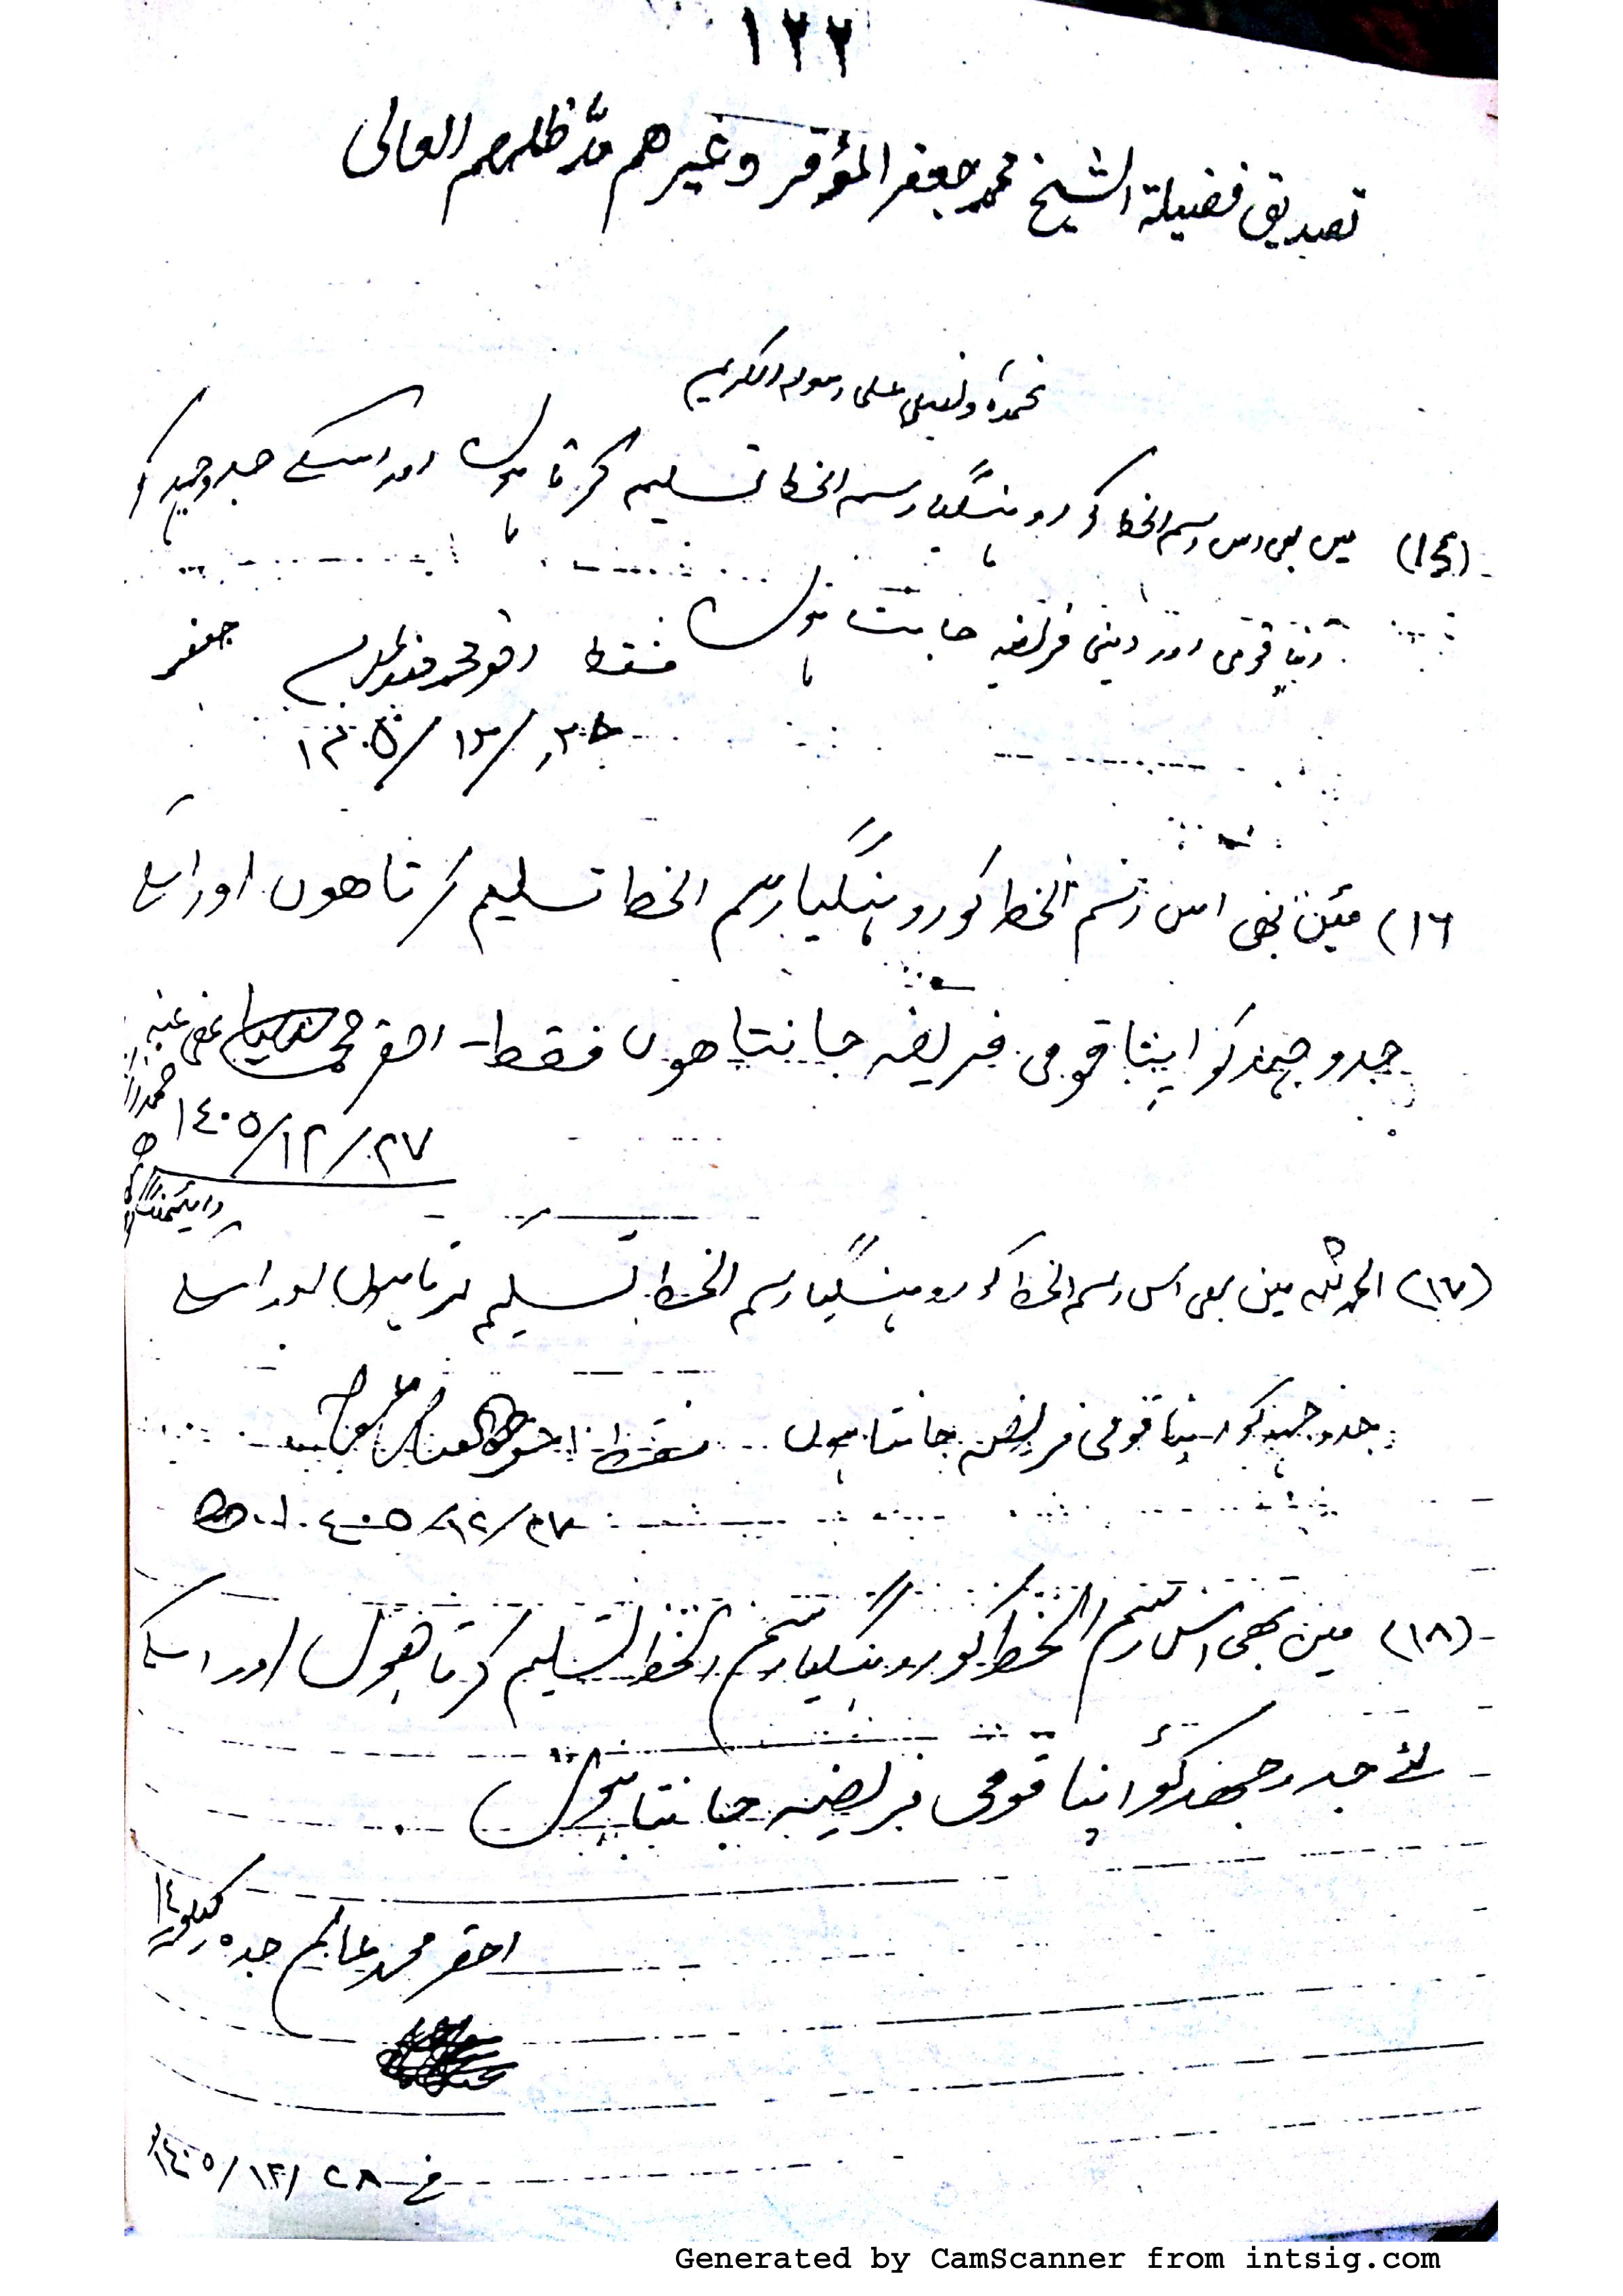 ١٢٢
تصديق فضيلة الشيخ محمد جعفر المؤقر وغيرهم مدّ ظلهم العالى
نحمده ونصلى على رسوله الكريم
(١٥) میں بھی اس رسم الخط کو روہنگیا رسم الخط تسلیم کرتا ہوں اور اسکے جدوجہد کو
اپنا قومی اور دینی فریضہ جانتا ہوں فقط جعفر
١٤٠٥/١٢/
١٦) مین بھی اس رسم الخط کو روہنگیا رسم الخط تسلیم کرتا ھوں اور اسکے
جدوجہد کو اپنا قومی فریضہ جانتا ھوں فقط۔ احقر محمد عفی عنہ
١٤٠٥/١٢/٢٧
(١٧) الحمد للہ مین بھی اس رسم الخط کو روہنگیا رسم الخط تسلیم کرتا ہوں اور اسکے
جدوجہد کو اپنا قومی فریضہ جانتا ہوں فقط احقر
١٤٠٥/١٢/٢٧
(١٨) مین بھی اس رسم الخط کو روہنگیا رسم الخط تسلیم کرتا ہوں اور اسکے
لئے جدوجھد کو اپنا قومی فریضہ جانتا ہوں
احقر محمد عالم جدہ کیلو ١٤
١٤٠٥/١٢/٢٨
Generated by CamScanner from intsig.com